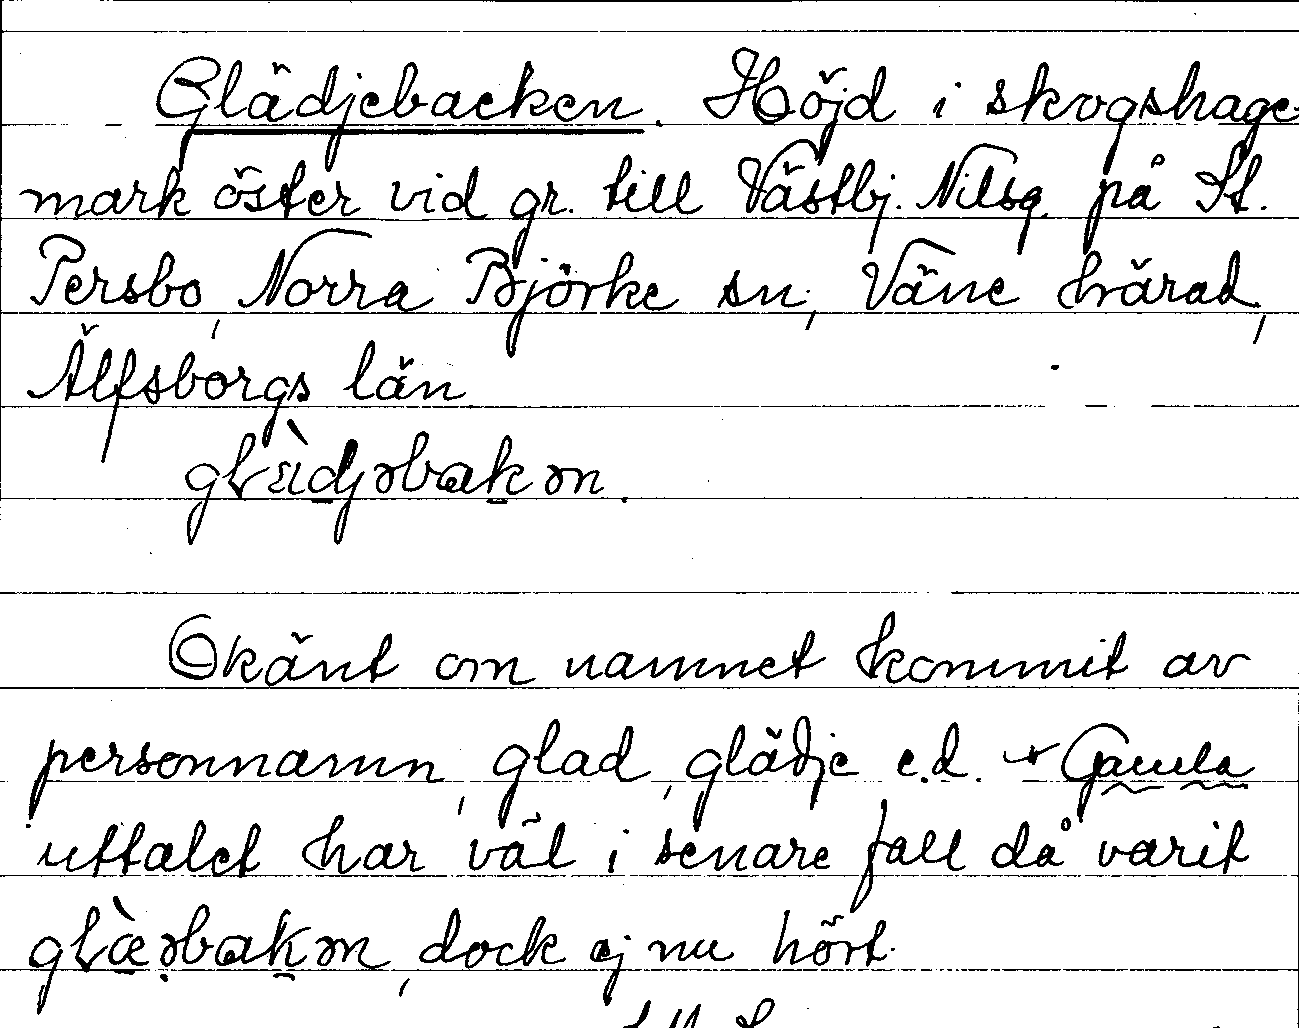 Glädjebacken. Höjd i skogshage-
mark öster vid gr. till Västbj. Nilsg. på St.
Persbo, Norra Björke sn, Väne härad,
Älfsborgs län
glädjəbakən.
Okänt om namnet kommit av
personnamn, glad, glädje e.d. * Gamla
uttalet har väl i senare fall då varit
glæ̀əbakən, dock ej nu hört.